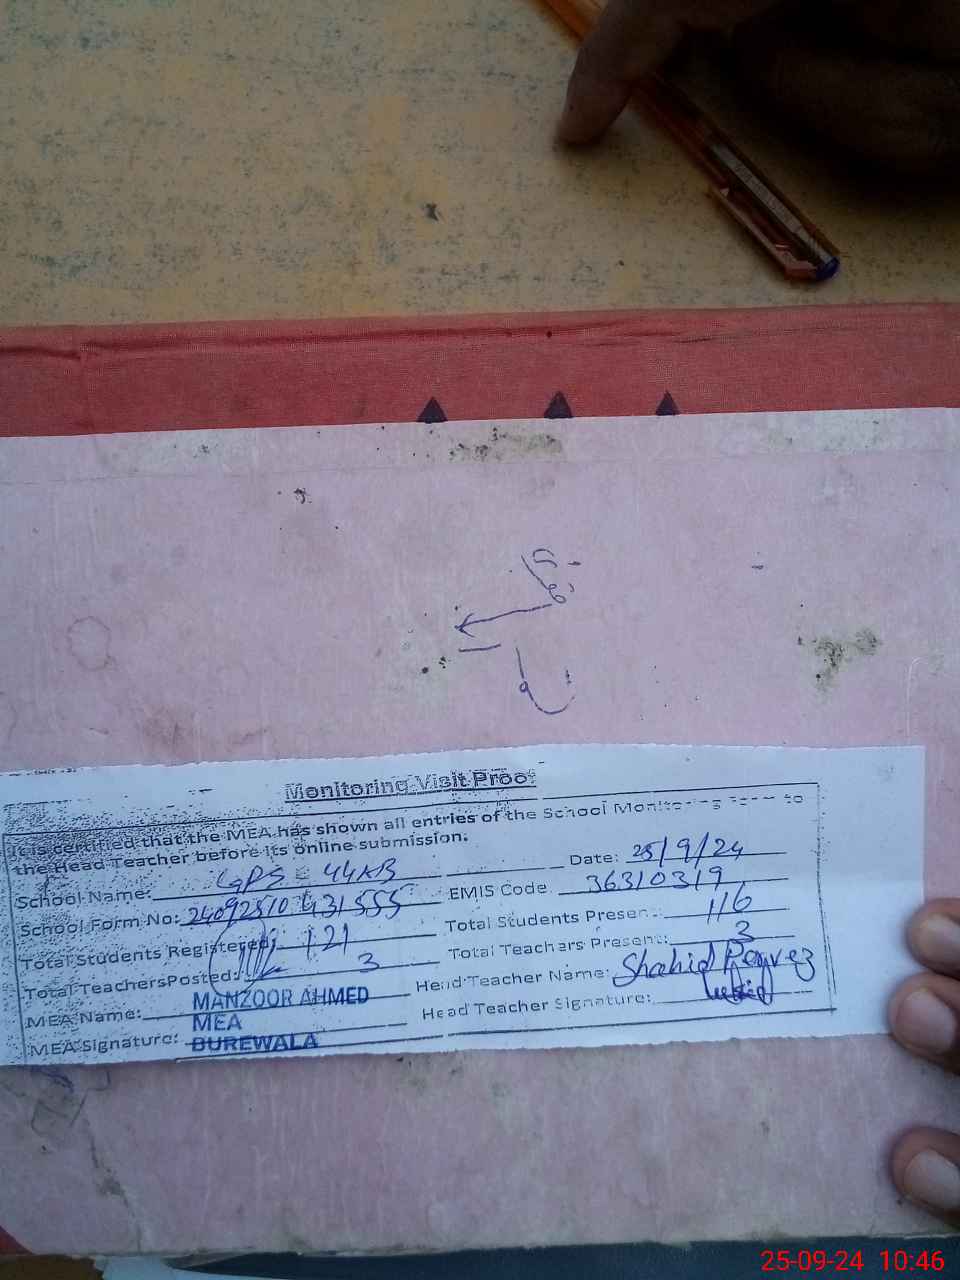 Monitoring Visit Proof
It is certified that the MEA has shown all entries of the School Monitoring Form to
the Head Teacher before its online submission.
School Name: GPS 44KB Date: 25/9/24
School Form No: EMIS Code 36310319
Total Students Registered: 121 Total Students Present: 116
Total Teachers Posted: 3 Total Teachers Present: 3
MEA Name: MANZOOR AHMED Head Teacher Name: Shahid Pervez
MEA
MEA Signature: BUREWALA Head Teacher Signature:
25-09-24 10:46